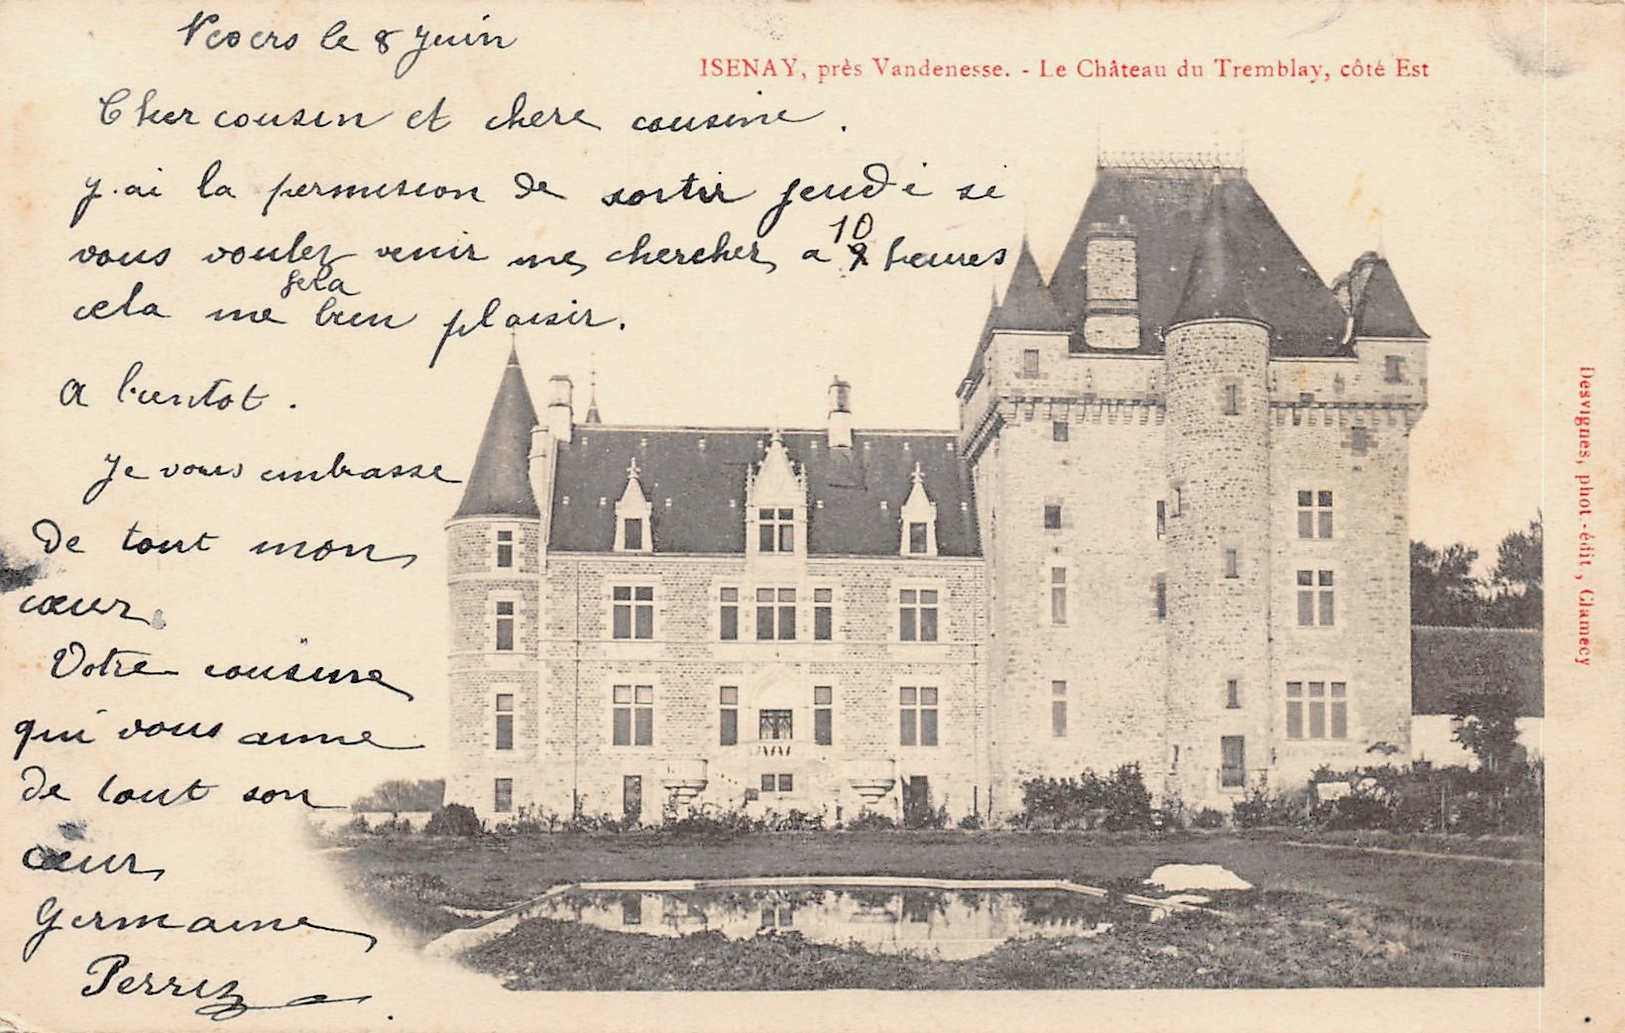 Nevers le 8 Juin
ISENAY, près Vandenesse. - Le Château du Tremblay, côté Est
Cher cousin et chere cousine.
J'ai la permission de sortir jeudi si
vous voulez venir me chercher a 10 heures
cela me fera bien plaisir.
A bientot.
Je vous embrasse
De tout mon
cœur.
Votre cousine
qui vous aime
de tout son
cœur
Germaine
Perrez
Desvignes, phot.-édit, Clamecy